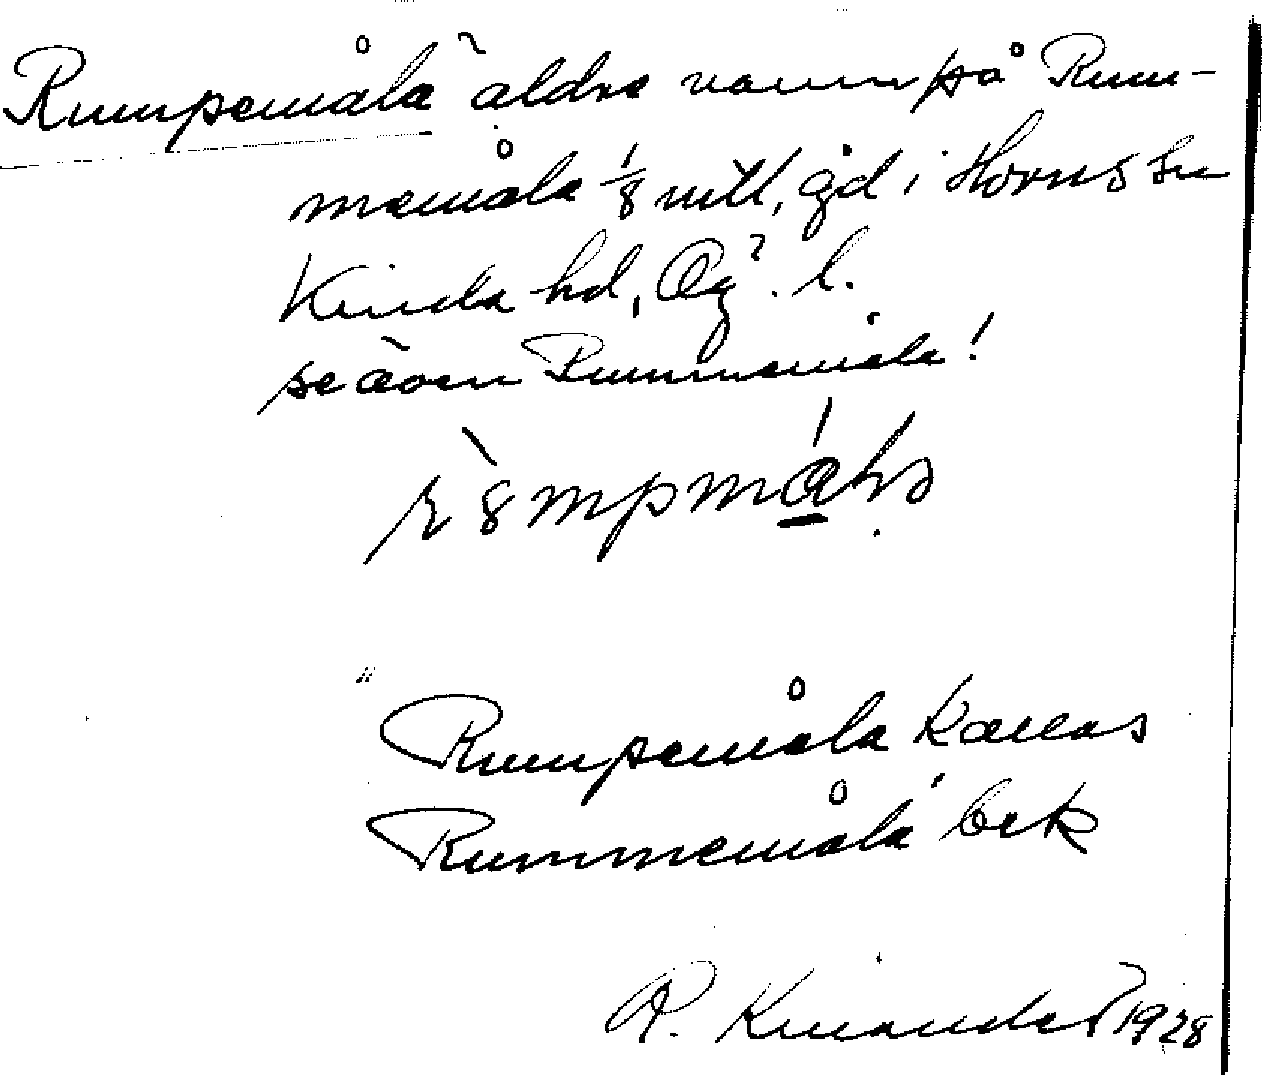 Rumpemåla äldre namn på Rum-
memåla 1/8 mtl, gd i Horns sn
Kinda hd, Ög. l.
se även Rummemåla!
Rumpemåla kallas
Rummemåla bek
R. Kinander 1928